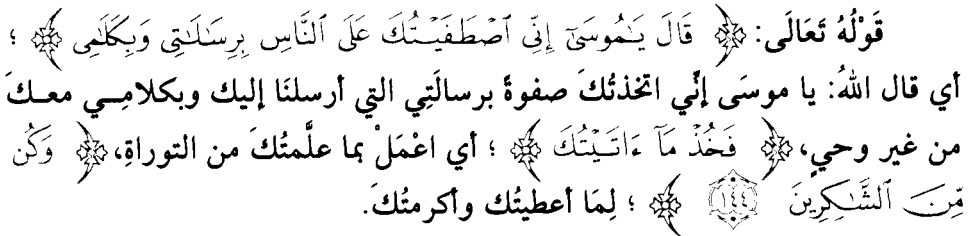 قَوْلُهُ تَعَالَى: ﴿ قَالَ يَـٰمُوسَىٰٓ إِنِّى ٱصْطَفَيْتُكَ عَلَى ٱلنَّاسِ بِرِسَـٰلَـٰتِى وَبِكَلَـٰمِى ﴾ ؛
أي قال اللهُ: يا موسَى إنِّي اتخذتُكَ صفوةً برسالَتِي التي أرسلنَا إليك وبكلامِـي معـكَ
من غير وحيٍ، ﴿ فَخُذْ مَآ ءَاتَيْتُكَ ﴾ ؛ أي اعْمَلْ بما علَّمتُكَ من التوراةِ، ﴿ وَكُن
مِّنَ ٱلشَّـٰكِرِينَ ١٤٤ ﴾ ؛ لِمَا أعطيتُك وأكرمتُكَ.